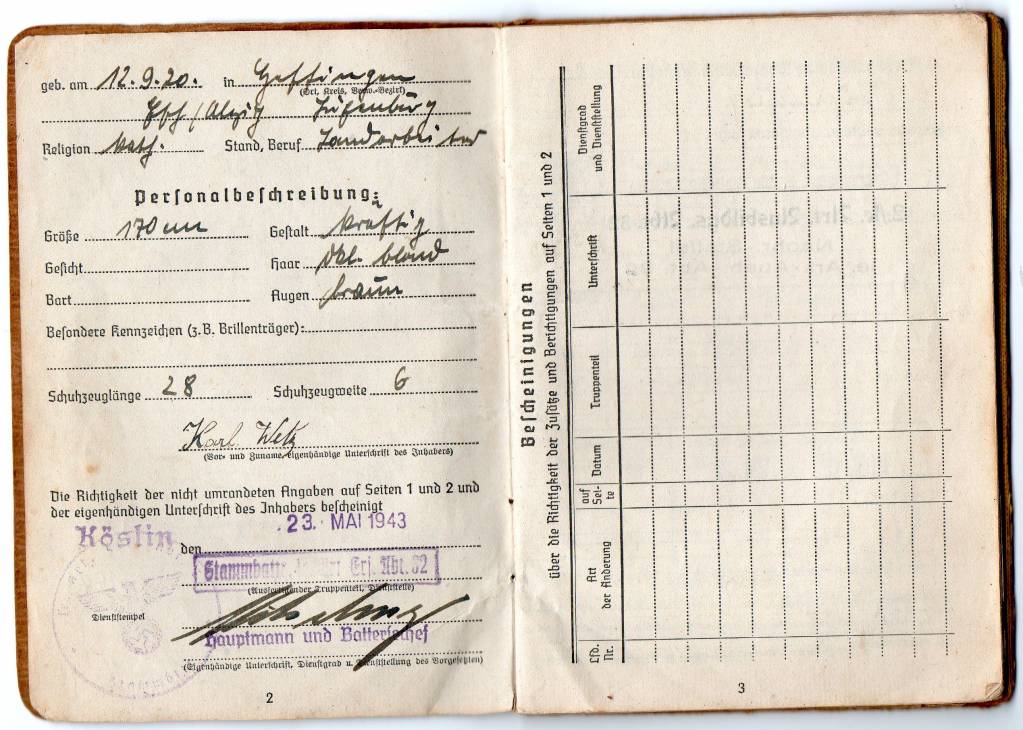 geb. am 12.9.20. in
(Ort, Kreis, Verw.-Bezirk)
Religion kath. Stand, Beruf Landarbeiter
Personalbeschreibung:
Größe 170 cm Gestalt kräftig
Gesicht Haar dkl. blond
Bart Augen braun
Besondere Kennzeichen (z.B. Brillenträger):
Schuhzeuglänge 28 Schuhzeugweite 6
Karl Welz
(Vor- und Zuname, eigenhändige Unterschrift des Inhabers)
Die Richtigkeit der nicht umrandeten Angaben auf Seiten 1 und 2 und
der eigenhändigen Unterschrift des Inhabers bescheinigt
Köslin den 23. MAI 1943
Stammbattr. Ers. Abt. 32
(Ausfertigender Truppenteil, Dienststelle)
Dienststempel
Hauptmann und Batteriechef
(Eigenhändige Unterschrift, Dienstgrad u. Dienststellung des Vorgesetzten)
2
Bescheinigungen
über die Richtigkeit der Zusätze und Berichtigungen auf Seiten 1 und 2
Lfd. Nr.
Art der Änderung
auf Sei- te
Datum
Truppenteil
Unterschrift
Dienstgrad und Dienststellung
3